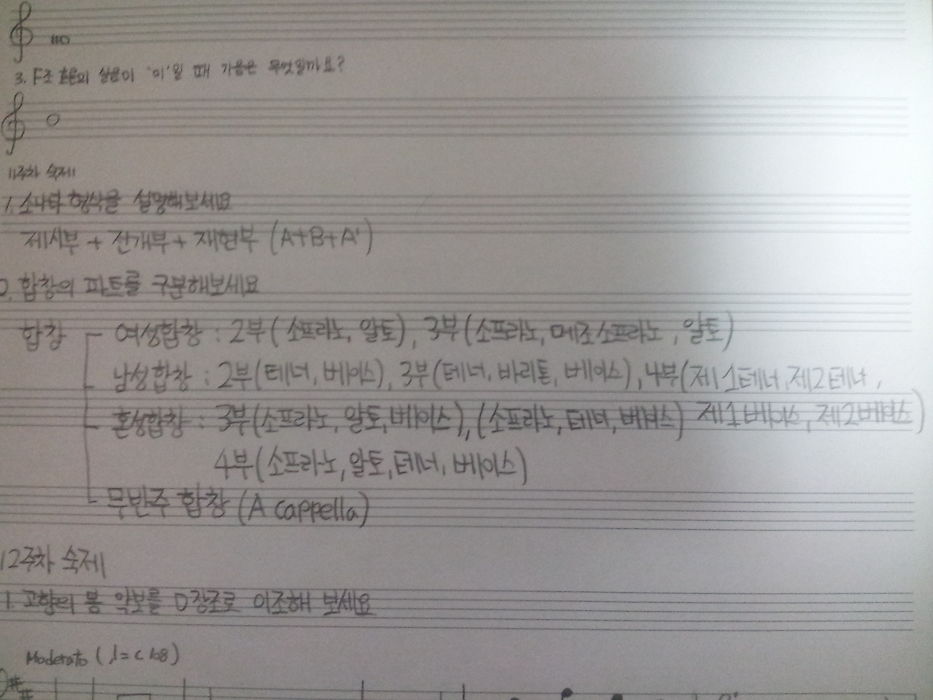 3. F조 호른의 실음이 '미'일 때 기음은 무엇일까요?
11주차 숙제
1. 소나타 형식을 설명해보세요
제시부 + 전개부 + 재현부 (A+B+A')
2. 합창의 파트를 구분해보세요
합창 여성합창 : 2부(소프라노, 알토), 3부(소프라노, 메조소프라노, 알토)
남성합창 : 2부(테너, 베이스), 3부(테너, 바리톤, 베이스), 4부(제1테너, 제2테너,
제1베이스, 제2베이스)
혼성합창 : 3부(소프라노, 알토, 베이스), (소프라노, 테너, 베이스)
4부(소프라노, 알토, 테너, 베이스)
무반주 합창 (A cappella)
12주차 숙제
1. 고향의 봄 악보를 D장조로 이조해 보세요
Moderato